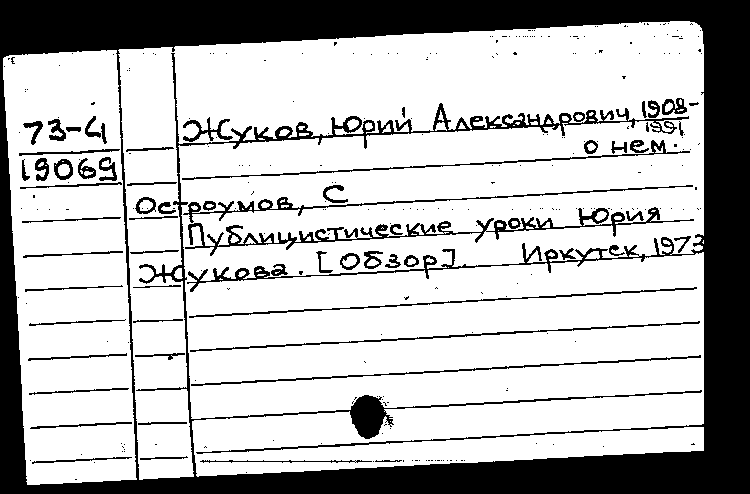 73-4
19069
Жуков, Юрий Александрович, 1908-
1991
о нем.
Остроумов, С
Публицистические уроки Юрия
Жукова. [Обзор]. Иркутск, 1973